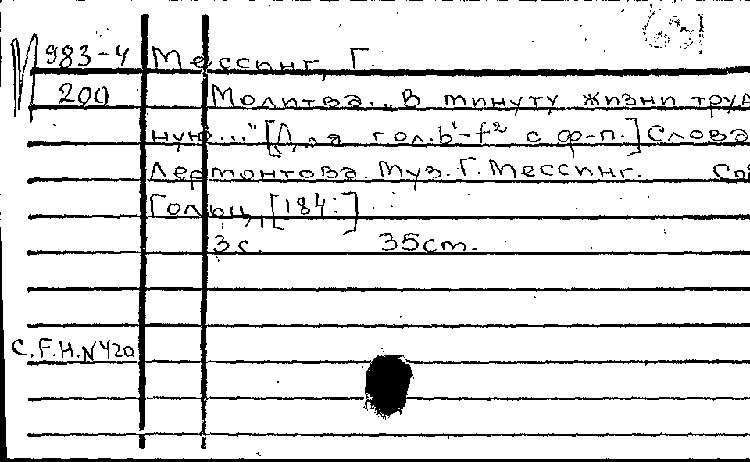 983-4 Мессинг, Г.
200 Молитва. "В минуту жизни труд
ную..." [Для гол. b'-f² с ф-п.] Слова
Лермонтова. Муз. Г. Мессинг.
Гольц, [184:]
3с. 35см.
C.F.H.N420